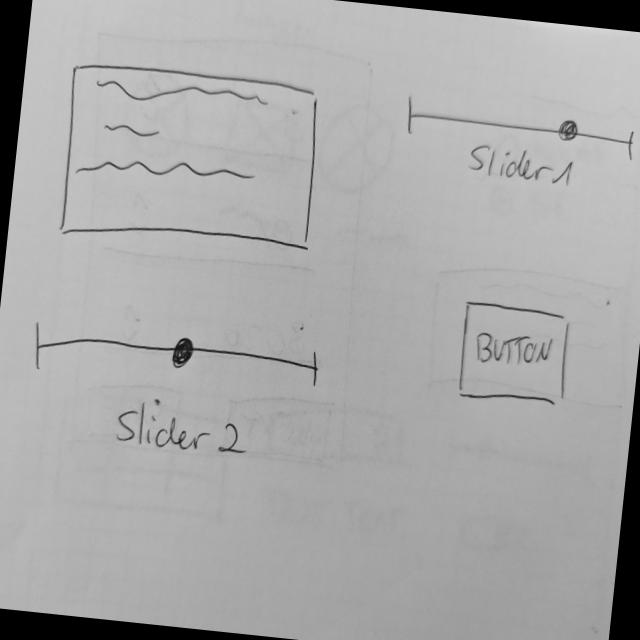 Slider 1
BUTTON
Slider 2